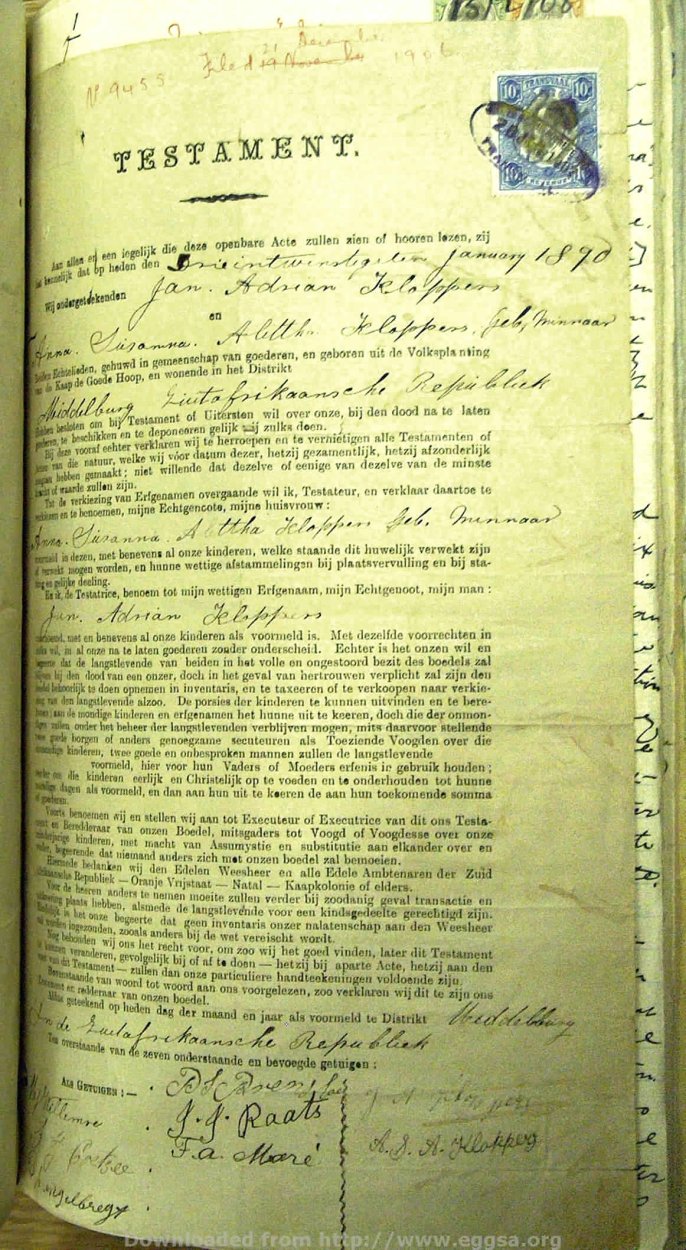 13/2/06
Nº 9455
21 December
Filed 19 November 1906
TRANSVAAL
10/ 10/
TESTAMENT.
Aan allen en een iegelijk die deze openbare Acte zullen zien of hooren lezen, zij
kennelijk dat op heden den Drieintwinstigsten January 1890
Wij ondergeteekenden Jan. Adrian Kloppers
en
Anna. Susanna. Aletta Kloppers, Geb, Minnaar
Beiden Echtelieden, gehuwd in gemeenschap van goederen, en geboren uit de Volksplanting
van de Kaap de Goede Hoop, en wonende in het Distrikt
Middelburg Zuitafrikaansche Republiek
Hebben besloten om bij Testament of Uitersten wil over onze, bij den dood na te laten
goederen, te beschikken en te deponeeren gelijk wij zulks doen.
Bij deze vooraf echter verklaren wij te herroepen en te vernietigen alle Testamenten of
Acten van die natuur, welke wij vóór datum dezer, hetzij gezamentlijk, hetzij afzonderlijk
mogten hebben gemaakt; niet willende dat dezelve of eenige van dezelve van de minste
kracht of waarde zullen zijn.
Tot de verkiezing van Erfgenamen overgaande wil ik, Testateur, en verklaar daartoe te
verkiezen en te benoemen, mijne Echtgenoote, mijne huisvrouw:
Anna. Susanna. Alettha Kloppers Geb. Minnaar
voormeld in dezen, met benevens al onze kinderen, welke staande dit huwelijk verwekt zijn
of verwekt mogen worden, en hunne wettige afstammelingen bij plaatsvervulling en bij sta-
ing en gelijke deeling.
En ik, de Testatrice, benoem tot mijn wettigen Erfgenaam, mijn Echtgenoot, mijn man:
Jan. Adrian Kloppers
met en benevens al onze kinderen als voormeld is. Met dezelfde voorrechten in
wil, in al onze na te laten goederen zonder onderscheid. Echter is het onzen wil en
begeerte dat de langstlevende van beiden in het volle en ongestoord bezit des boedels zal
blijven bij den dood van een onzer, doch in het geval van hertrouwen verplicht zal zijn den
boedel behoorlijk te doen opnemen in inventaris, en te taxeeren of te verkoopen naar verkie-
zing van den langstlevende alzoo. De porsies der kinderen te kunnen uitvinden en te bere-
aan de mondige kinderen en erfgenamen het hunne uit te keeren, doch die der onmon-
digen zullen onder het beheer der langstlevenden verblijven mogen, mits daarvoor stellende
twee goede borgen of anders genoegzame secuteuren als Toeziende Voogden over die
onmondige kinderen, twee goede en onbesproken mannen zullen de langstlevende
voormeld, hier voor hun Vaders of Moeders erfenis in gebruik houden;
verder om die kinderen eerlijk en Christelijk op te voeden en te onderhouden tot hunne
mondige dagen als voormeld, en dan aan hun uit te keeren de aan hun toekomende somma
of goederen.
Voorts benoemen wij en stellen wij aan tot Executeur of Executrice van dit ons Testa-
ment en Beredderaar van onzen Boedel, mitsgaders tot Voogd of Voogdesse over onze
minderjarige kinderen, met macht van Assumystie en substitutie aan elkander over en
weder, begeerende dat niemand anders zich met onzen boedel zal bemoeien.
Hiermede bedanken wij den Edelen Weesheer en alle Edele Ambtenaren der Zuid
Afrikaansche Republiek — Oranje Vrijstaat — Natal — Kaapkolonie of elders.
Voor de heeren anders te nemen moeite zullen verder bij zoodanig geval transactie en
plaats hebben, alsmede de langstlevende voor een kindsgedeelte gerechtigd zijn.
is het onze begeerte dat geen inventaris onzer nalatenschap aan den Weesheer
zal worden ingezonden, zooals anders bij de wet vereischt wordt.
Nog behouden wij ons het recht voor, om zoo wij het goed vinden, later dit Testament
te kunnen veranderen, gevolgelijk bij of af te doen — hetzij bij aparte Acte, hetzij aan den
voet van dit Testament — zullen dan onze particuliere handteekeningen voldoende zijn.
Bovenstaande van woord tot woord aan ons voorgelezen, zoo verklaren wij dit te zijn ons
Testament en redderaar van onzen boedel.
Aldus geteekend op heden dag der maand en jaar als voormeld te Distrikt Middelburg
In de Zuitafrikaansche Republiek
Ten overstaande van de zeven onderstaande en bevoegde getuigen:
ALS GETUIGEN:—
J. J. Raats
F. a. Maré
A. S. A. Klopper
Engelbregt
Downloaded from http://www.eggsa.org